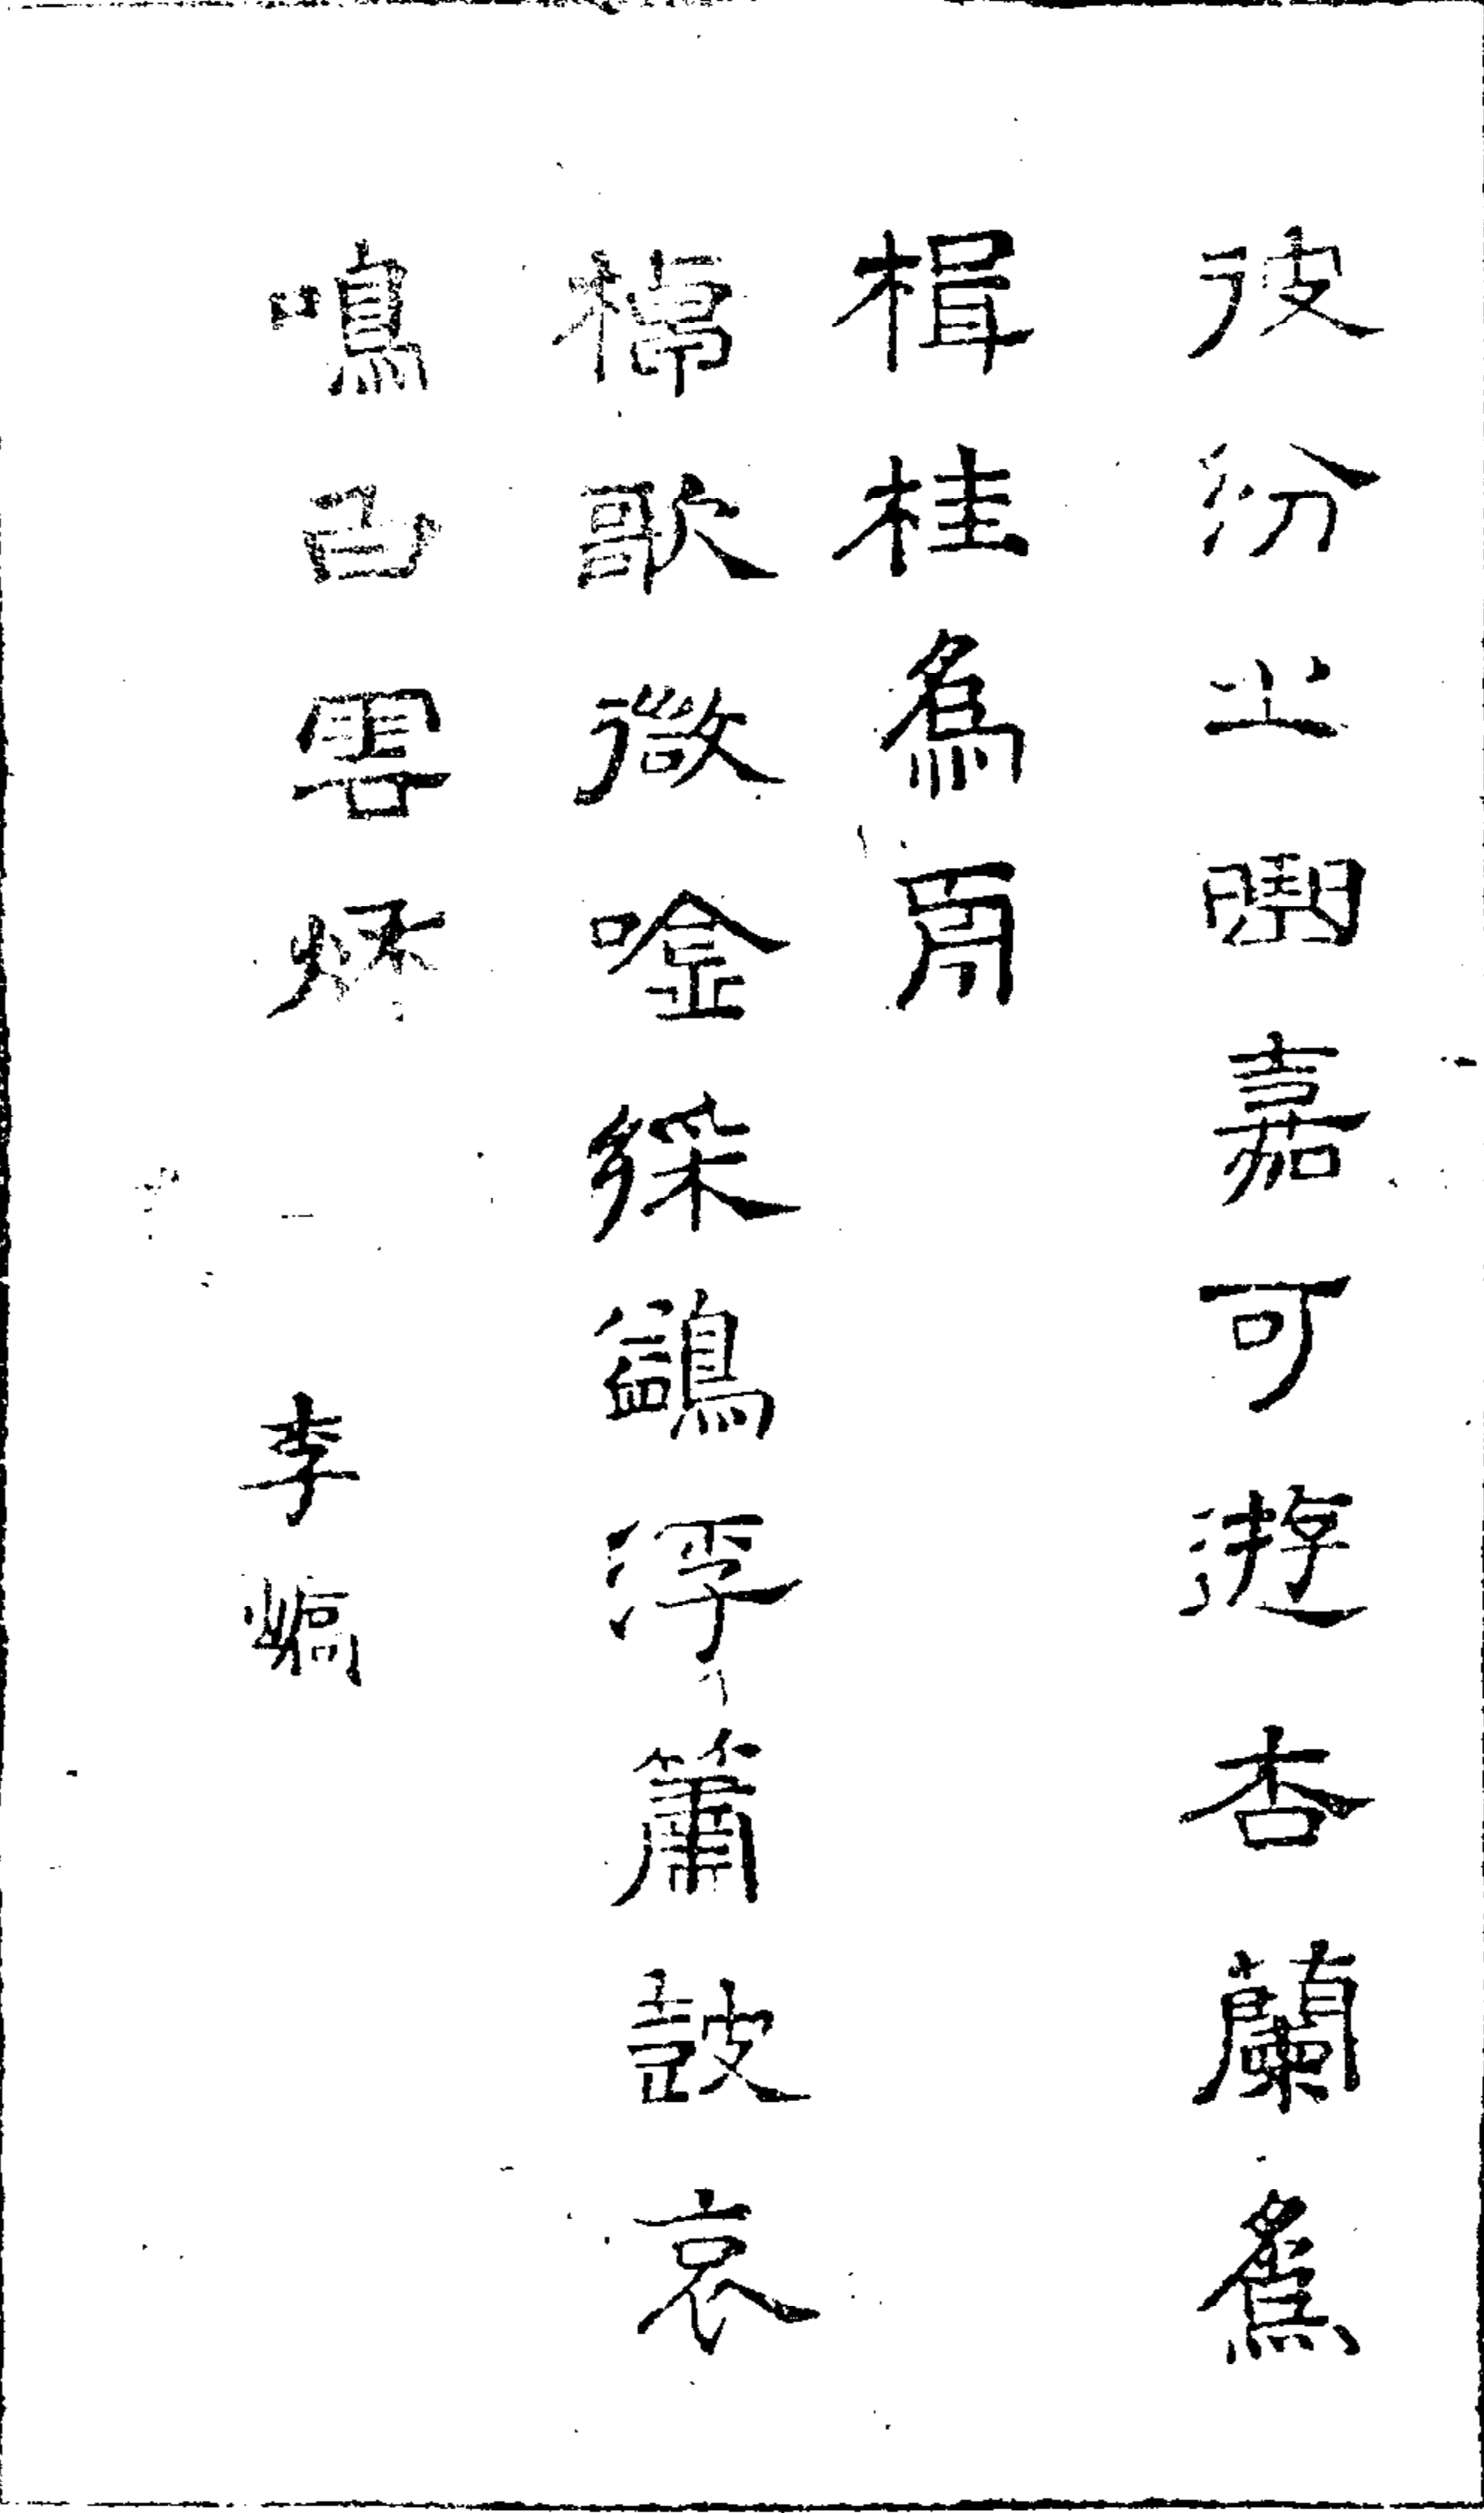 彼汾之嘉可遊杏蘭爲
楫桂爲舟
棹歌微唫綵鷁浮簫鼓哀
鳴白雲秋 李嶠